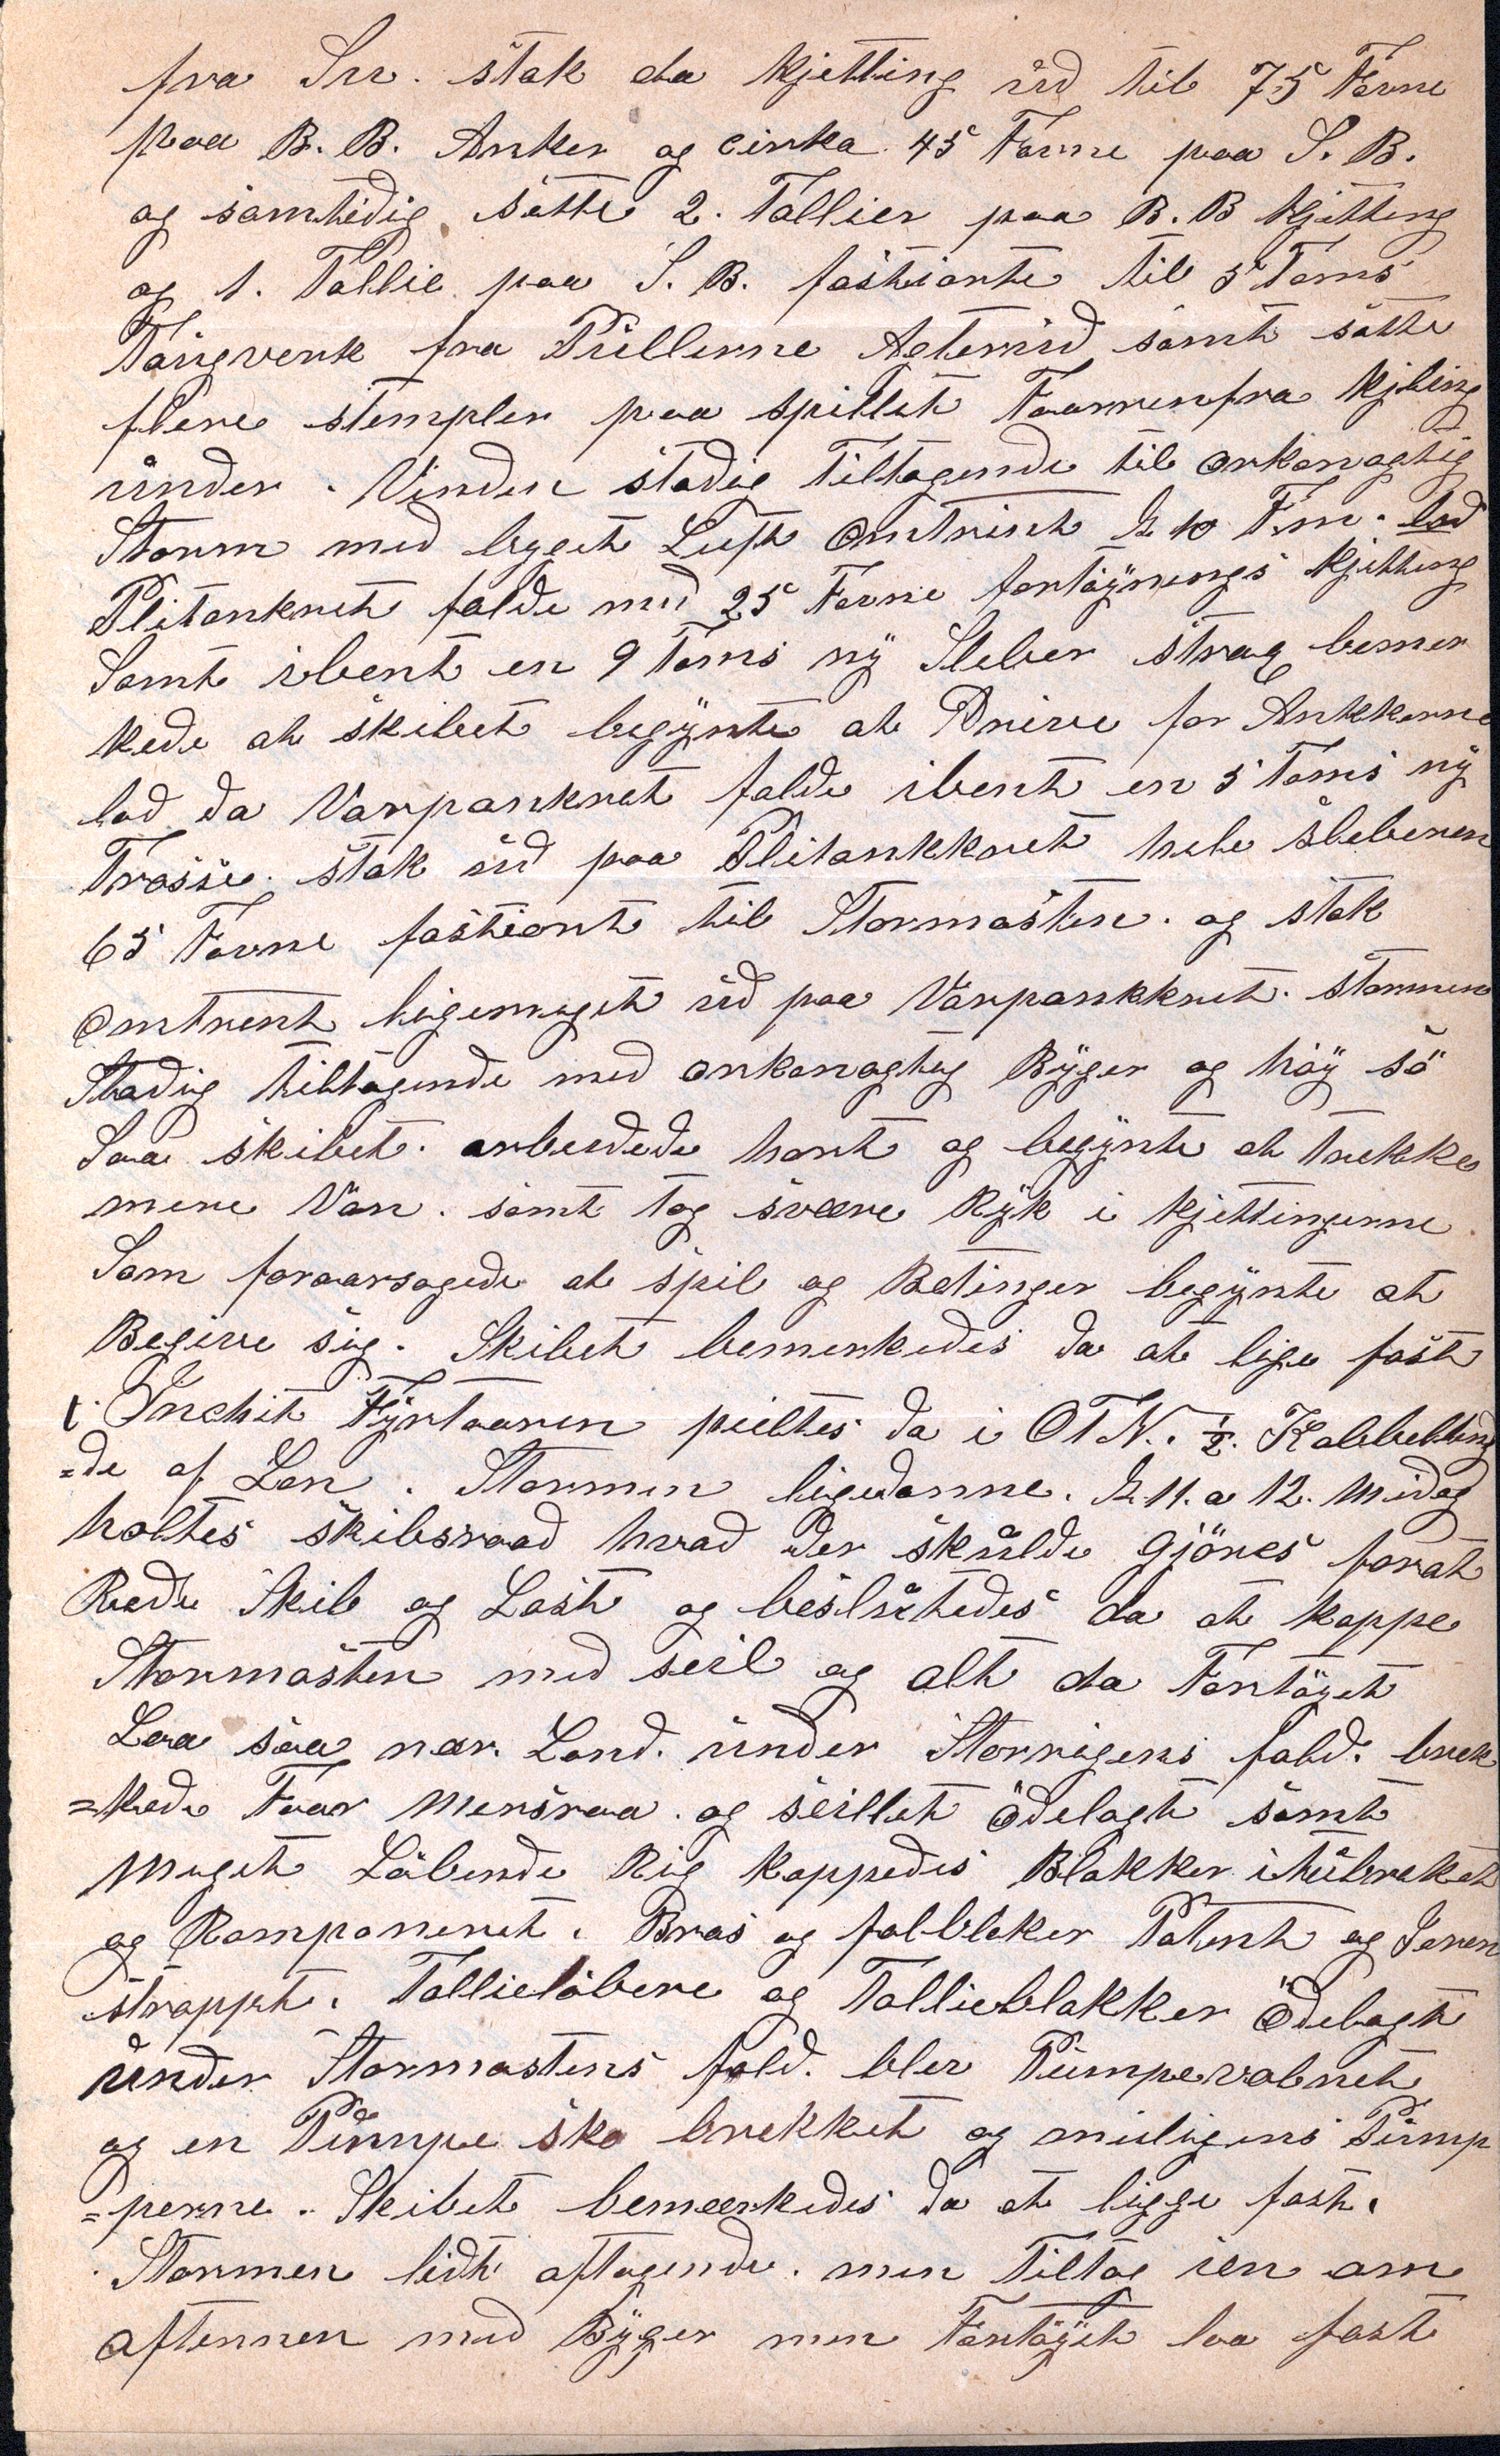 fra Srr. stak da Kjetting ud til 75 Favne
paa B. B. Anker og cirka 45 Favne paa S. B.
og samtidig satte 2. Tallier paa B. B Kjetting
og 1. Tallie paa S. B. fastjorte til 5 Toms
Taugverk fra Pullerne Agterud samt satte
flere stempler paa spillet Foarrenfra Kjiling
under. Vinden stadig Tiltagende til orkanagtig
Storm med byget Luft omtrent Kl 10 Fm. lod
Plitankret falde med 25 Favne fortøynings Kjetting
Samt ibent en 9 Toms ny Sleber strag bemer
kede at skibet begynte at Drive for Ankkerne
lod da Varpankret falde ibent en 5 Toms ny
Trosse. stak ud paa Plitankkret hele sleberen
65 Favne fastjort til Stormasten. og stak
omtrent ligemeget ud paa Varpankkret. stormen
Stadig tiltagende med orkanagtig Byger og høy sö
Saa skibet arbeidede hart og begynte at trekke
mere Van. samt tog svære Ryk i Kjettingerne
Som foraarsagede at spil og Betinger begynte at
Begive sig. Skibet bemerkedes da at lige fast
t. Inchit Fyrtaaren peiltes da i OTN. ½. Kabbellend
=de af Lan. Stormen ligedanne. Kl 11. a 12. Midag
holtes skibsraad hvad der skulde Gjöres forat
Rede Skib og Last og besluttedes da at kappe
Stormasten med seil og alt da Fartöyet
Laa saa nær. Land. under Storrigens fald. brek
=kede Foar Mersraa. og seillet ödelagt samt
Meget Löbende Rig kappedes Blakker itubrekket
og Ramponeret. Bras og falbloker Patent og Jeren
stroppt. Tallielöbere og Tallieblakker ödelagt
under Stormastens fald. blev Pumpevabnet
og en Pumpe sko brekket og muligens Pump
=perne. Skibet bemærkedes da at ligge fast.
Stormen lidt aftagende. men Tiltog ien om
aftennen med Byger men Fartöyet laa fast